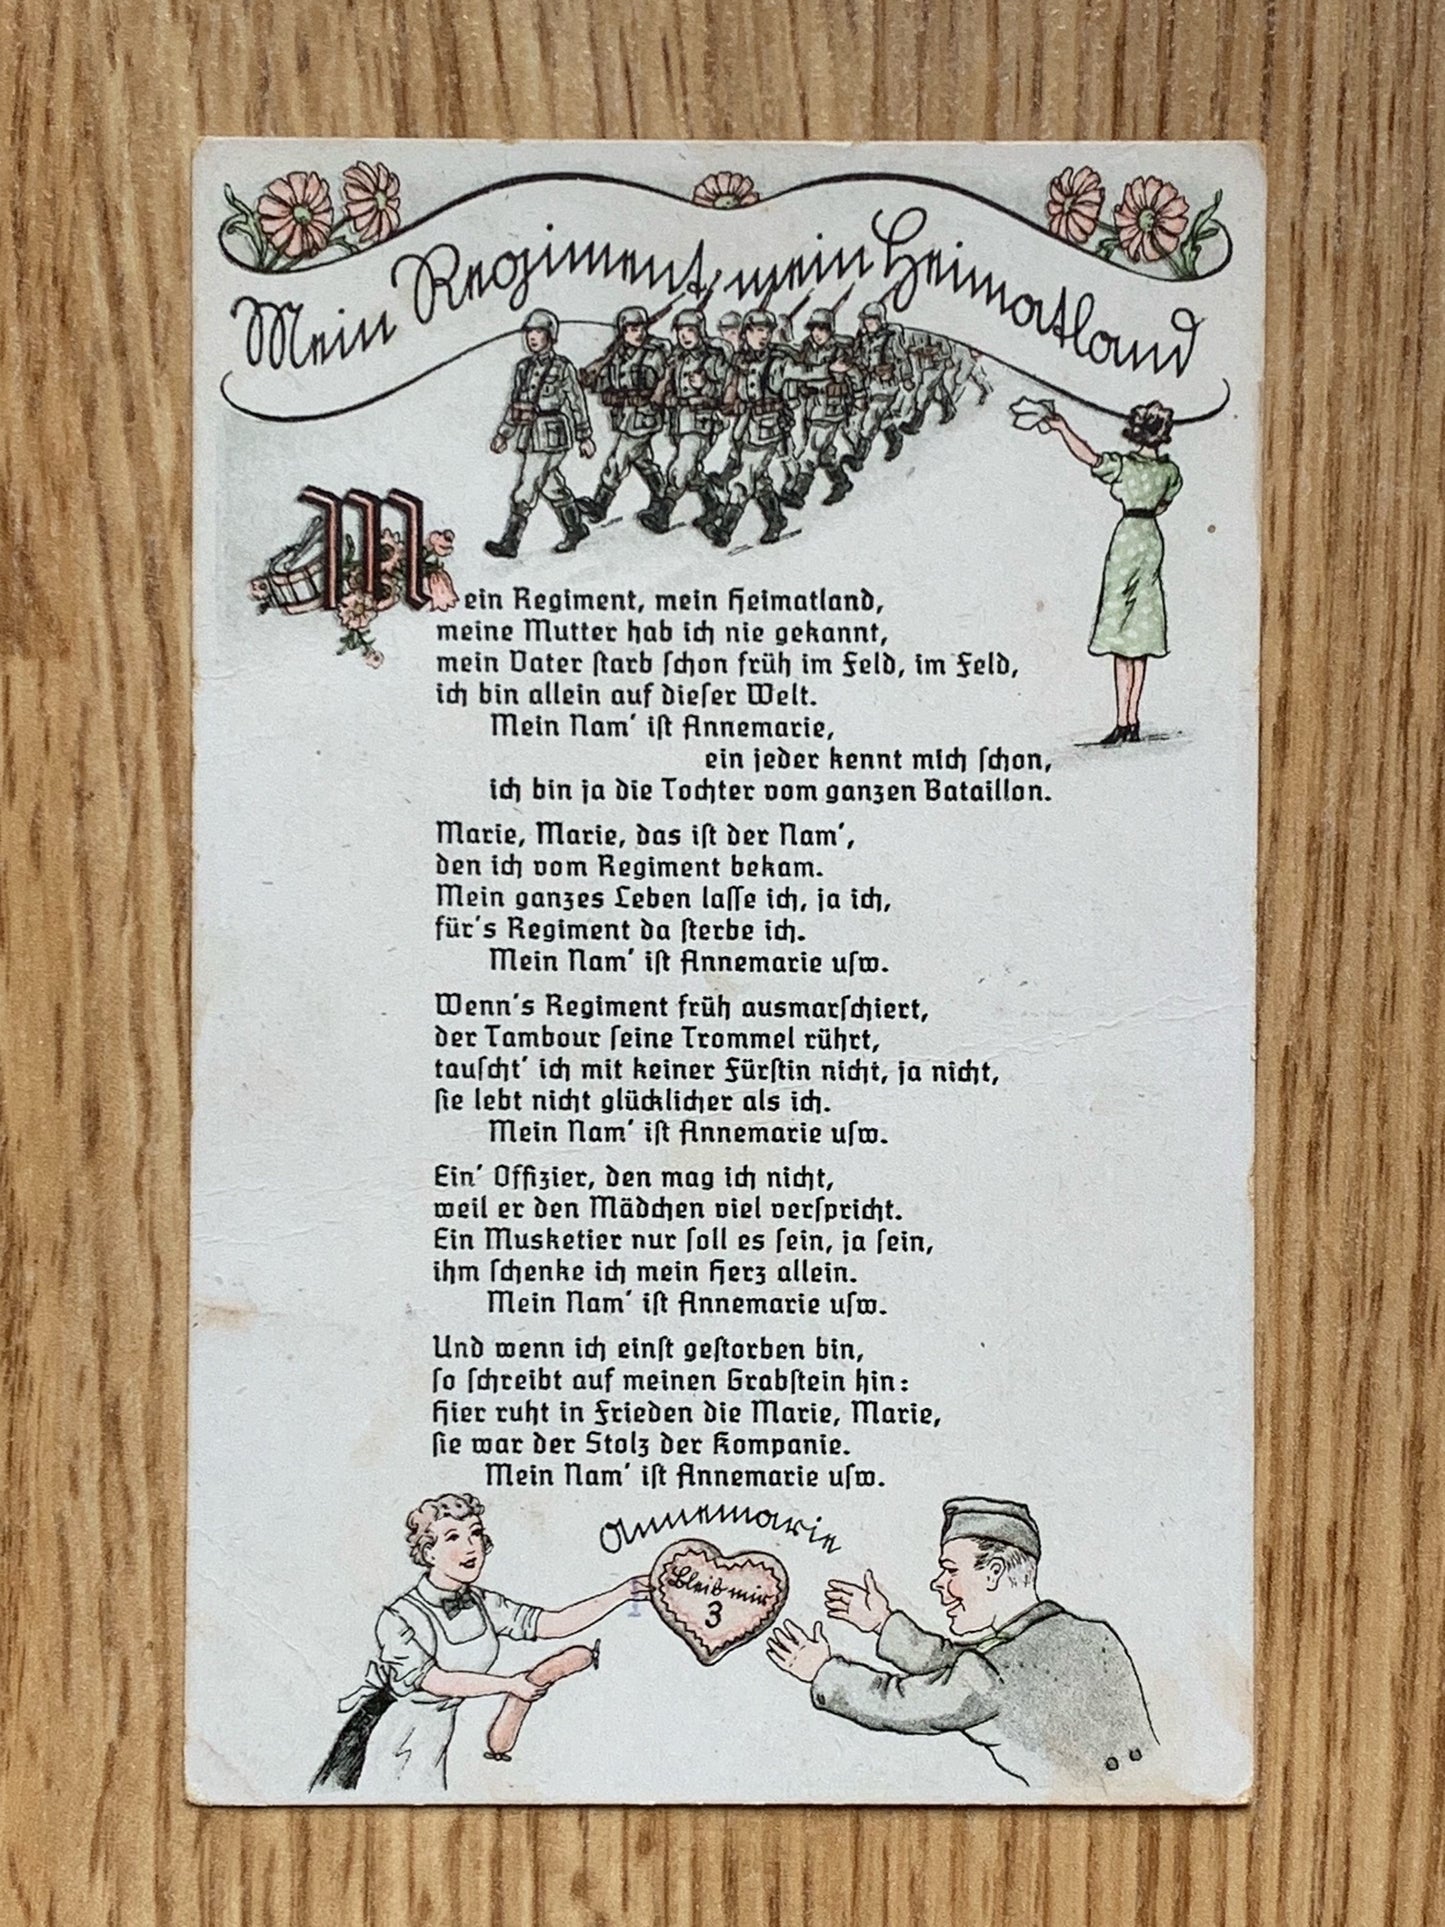 Mein Regiment, mein Heimatland
Mein Regiment, mein Heimatland,
meine Mutter hab ich nie gekannt,
mein Vater ſtarb ſchon früh im Feld, im Feld,
ich bin allein auf dieſer Welt.
Mein Nam' iſt Annemarie,
ein jeder kennt mich ſchon,
ich bin ja die Tochter vom ganzen Bataillon.
Marie, Marie, das iſt der Nam',
den ich vom Regiment bekam.
Mein ganzes Leben laſſe ich, ja ich,
für's Regiment da ſterbe ich.
Mein Nam' iſt Annemarie uſw.
Wenn's Regiment früh ausmarſchiert,
der Tambour ſeine Trommel rührt,
tauſcht' ich mit keiner Fürſtin nicht, ja nicht,
ſie lebt nicht glücklicher als ich.
Mein Nam' iſt Annemarie uſw.
Ein' Offizier, den mag ich nicht,
weil er den Mädchen viel verſpricht.
Ein Musketier nur ſoll es ſein, ja ſein,
ihm ſchenke ich mein Herz allein.
Mein Nam' iſt Annemarie uſw.
Und wenn ich einſt geſtorben bin,
ſo ſchreibt auf meinen Grabſtein hin:
Hier ruht in Frieden die Marie, Marie,
ſie war der Stolz der Kompanie.
Mein Nam' iſt Annemarie uſw.
Annemarie
Bleib mir
3